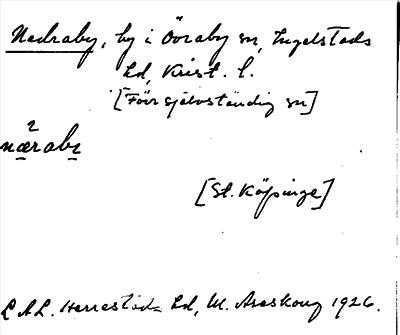 Nedraby, by i Övraby sn, Ingelstads
hd, Krist. l.
[Förr självständig sn]
næ̠rabɪ̠
[St. Köpinge]
LAL. Herrestads hd, M. Areskoug 1926.